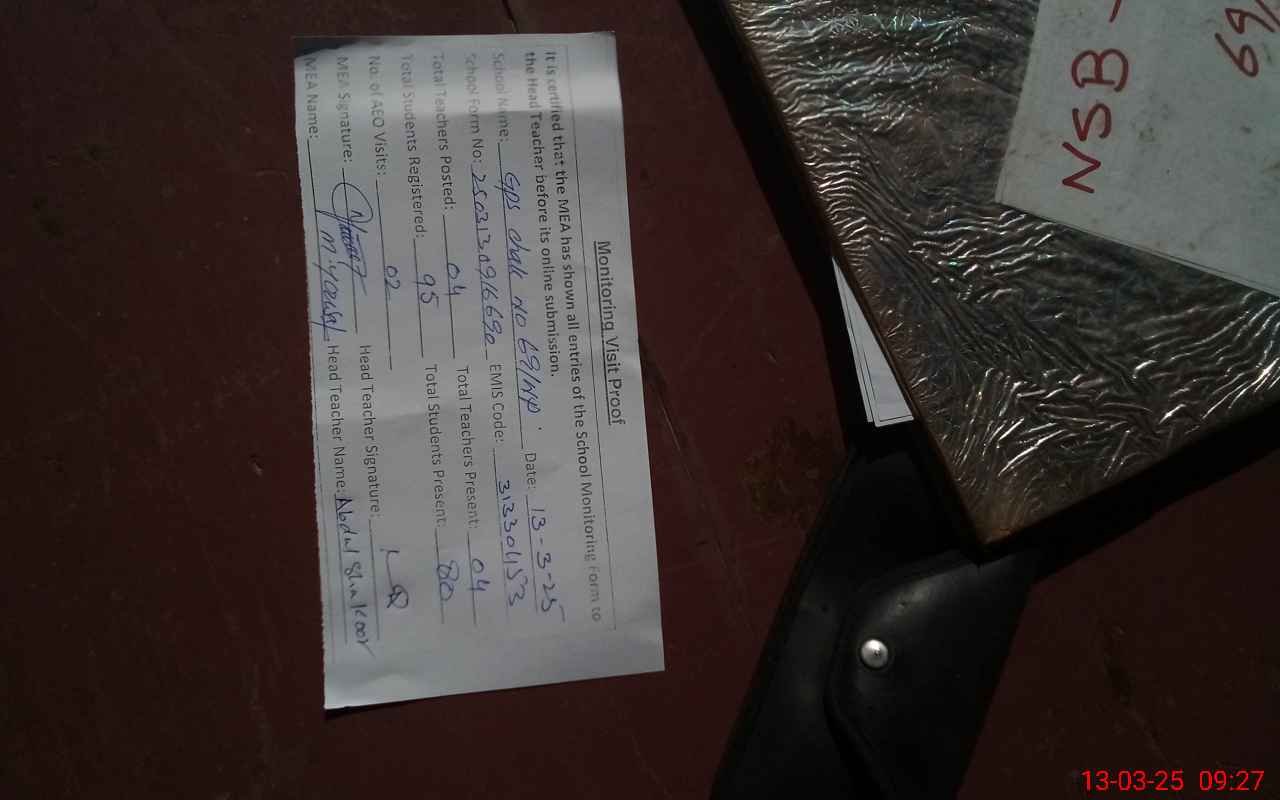 Monitoring Visit Proof
It is certified that the MEA has shown all entries of the School Monitoring Form to
the Head Teacher before its online submission.
School Name: Gps chak no 69/NP. Date: 13-3-25
School Form No: EMIS Code: 31330453
Total Teachers Posted: 04 Total Teachers Present: 04
Total Students Registered: 95 Total Students Present: 80
No. of AEO Visits: 02
MEA Signature: Head Teacher Signature:
MEA Name: M. Yousaf Head Teacher Name: Abdul Shakoor
NSB -
69/
13-03-25 09:27